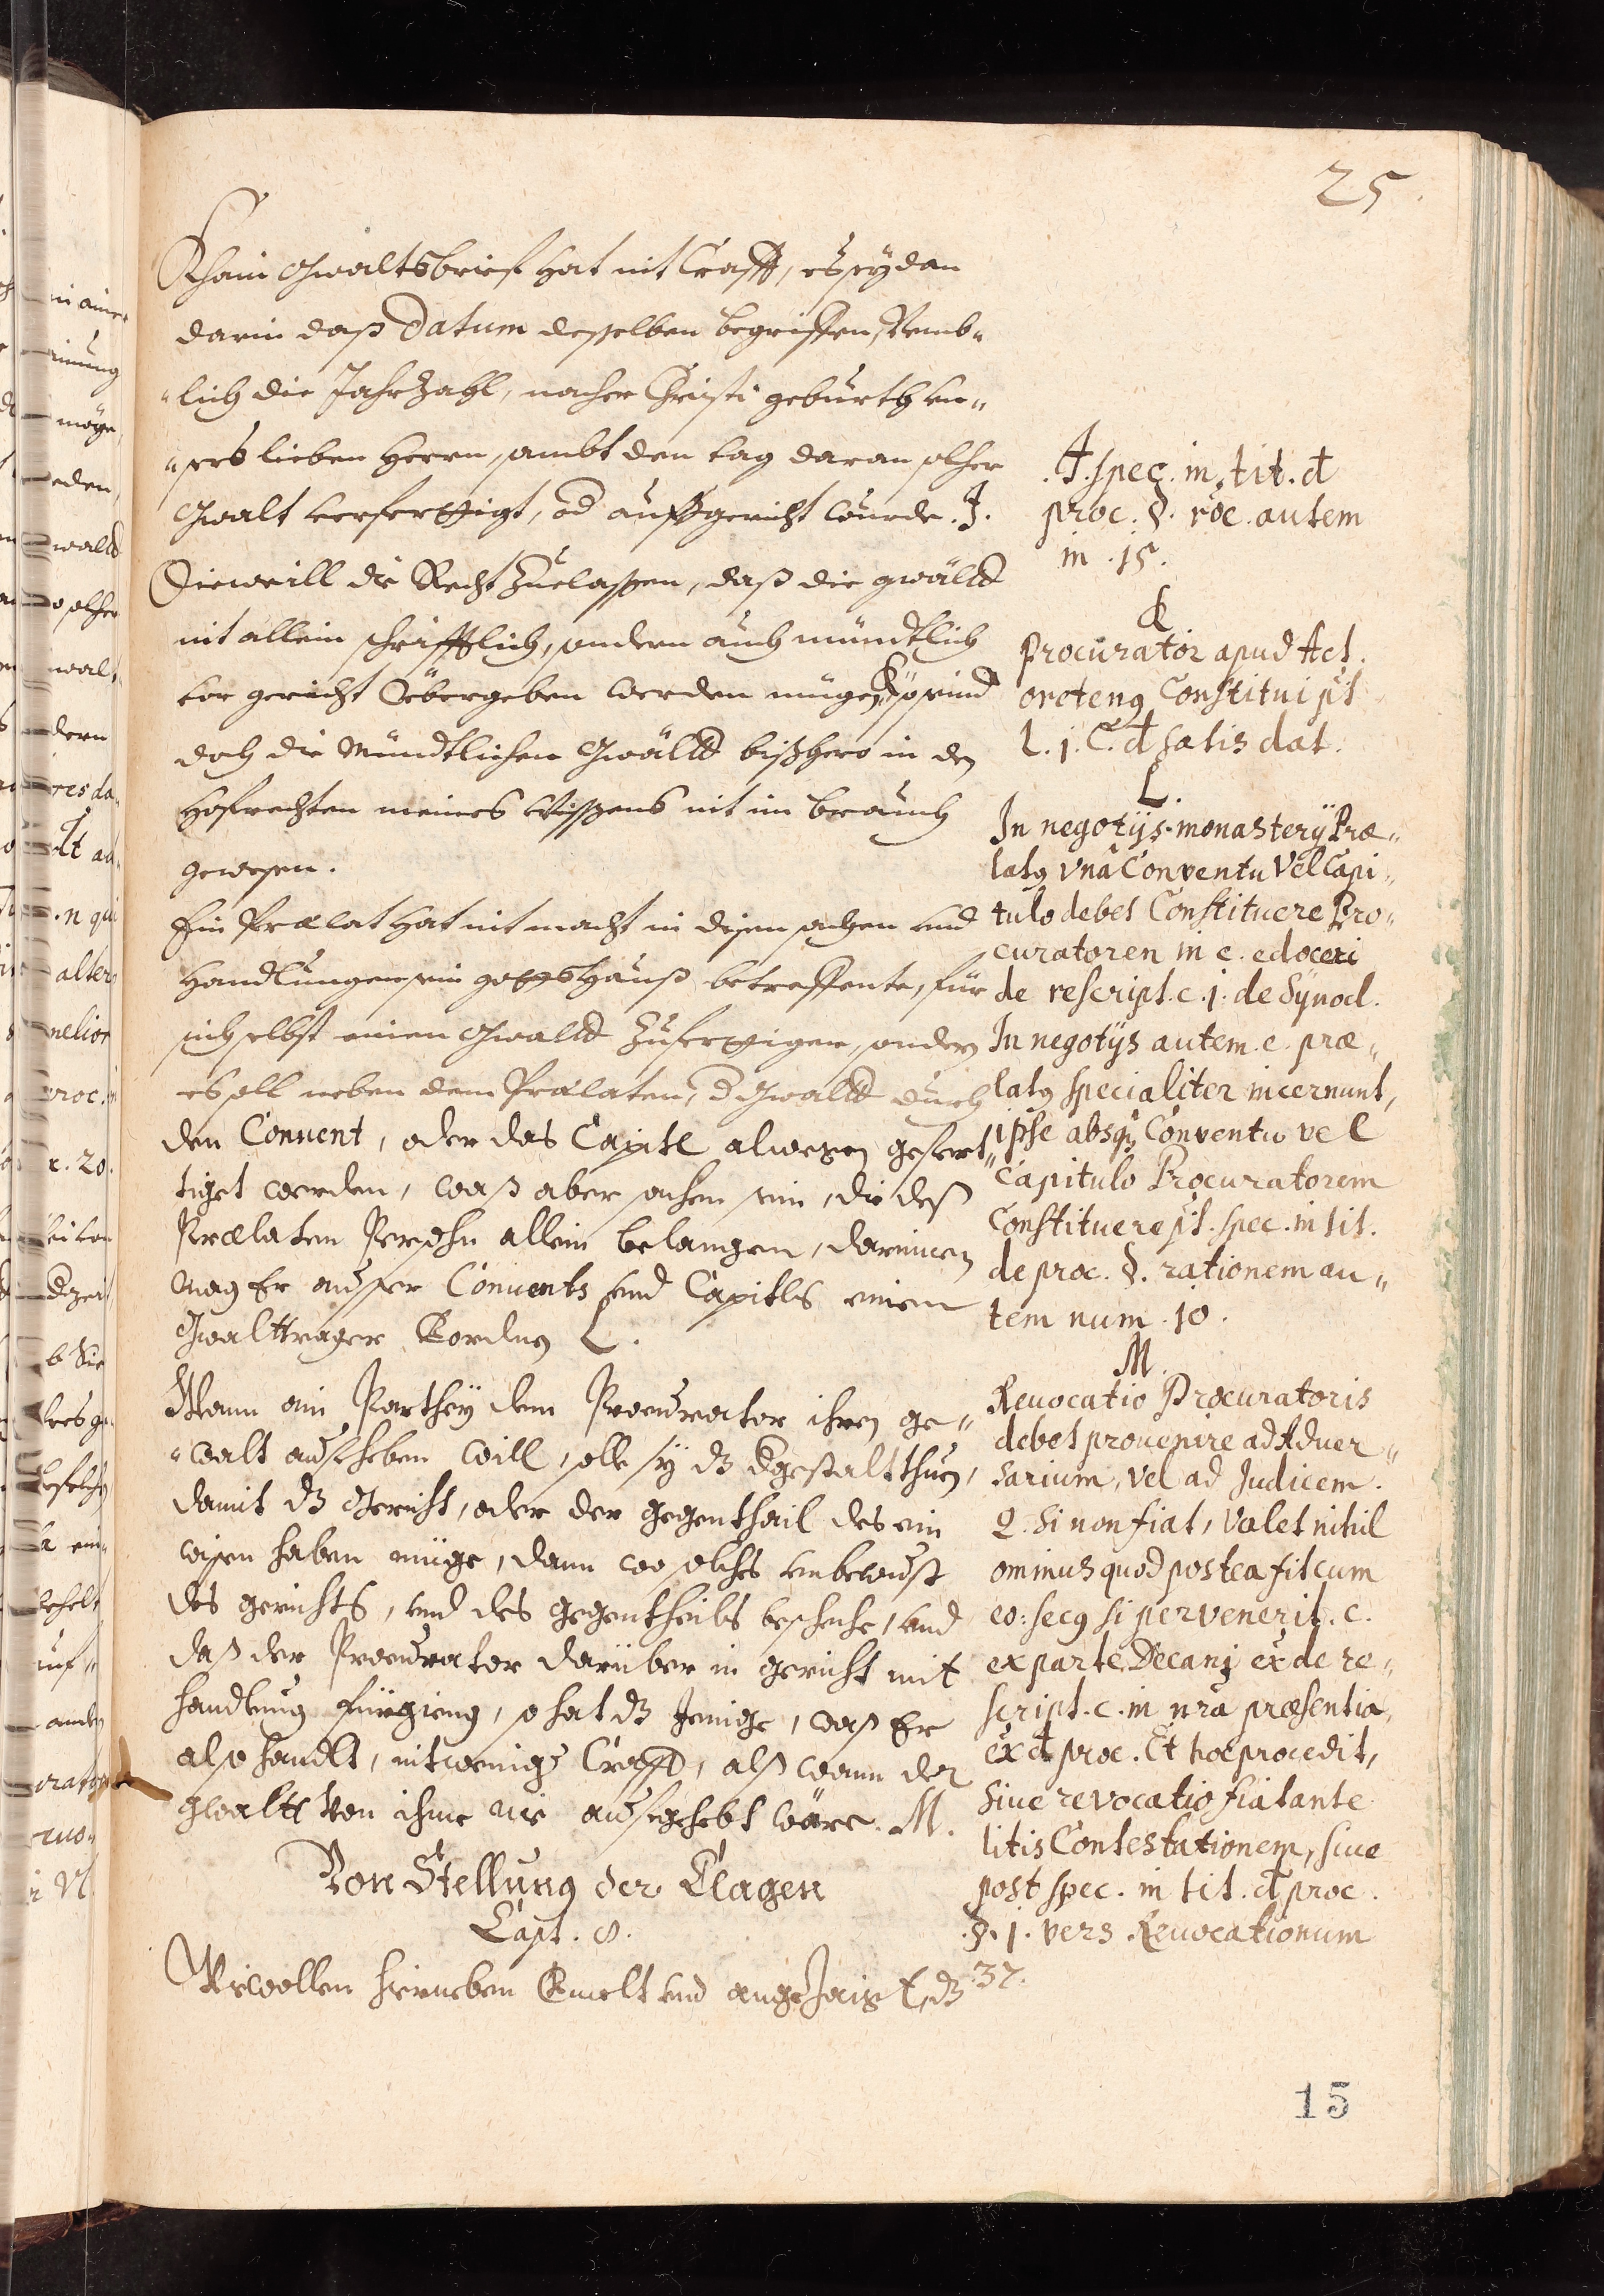 25.
Khain Gwaltsbrief hat nit Crafft, es sey dan
darin daß Datum desselben begriffen, Nemb„
„lich die Jahrzahl, nacher Christi geburth vn„
„sers lieben Herrn, sambt den tag daran solher
Gwalt verferttigt, od auffgericht wurde. J.
Dieweill die Recht Zuelassen, daß die gwäld
nit allein schrifftlich, sondern auch mündtlich
vor gericht Vebergeben werden mügen, K so seind
doch die Mündtlichen Gwäld bißhero in den
Hofrechten meines Wissens nit im brauch
gewesen.
Ein Prælat hat nit macht in disen sachen vnd
Handlungen sein gottshauß betreffente, für
sich selbst einen Gwald Zuferttigen, sondern
es soll neben dem Prælaten, d Gwald durch
den Conuent, oder das Capitl alwegen gefert„
tiget werden, waß aber sachen sein, die deß
Prælaten Persohn allein belangen, darinnen
mag Er ausser Conuents vnd Capitls einen
Gwalttrager L.
Wann ein Parthey dem Procurator ihren ge„
„walt aufheben will, solle sy dz dergestalt thuen,
damit dz Gericht, oder der gegenthail des ein
wissen haben müge, dann wo solches vnbewust
des gerichts, vnd des gegentheils beschehe, vnd
daß der Procurator darüber in gericht mit
handlung fürgieng, so hat dz Jenige, waß Er
also handlt, nit weniger Crafft, alß wann der
gwaltt von ihme nie aufgehebt wäre. M.
Von Stellung der Clagen
Capt. 8.
Wir wollen hierneben Gmelt vnd angezaigt, dz
J. spec. in tit. d
proc. §. roe. autem
in .15.
K
Procurator apud Act.
orotenq Constitui pt
l. j. C. d satis dat.
L.
In negotijs monasterij Præ„
latq vna Conventu Vel Capi„
tulo debet Constituere Pro„
curatoren in c. edoceri
de rescript. c. j. de Synod.
In negotijs autem e præ„
latq specialiter incernunt,
ipse absq Conventu vel
Capitulo Procuratorem
Constituere pt. spec. in tit.
de proc. §. rationem au„
tem num .10.
M.
Reuocatio Procuratoris
debet prouenire ad Aduer„
sarium, vel ad Judicem.
Q. si non fiat, valet nihil
ominus quod postea fit cum
eo: secq si pervenerit. c.
ex parte Decanj ex de re„
script. c. in nra præsentia,
ex d proc. Et hoc procedit,
siue revocatio fiat ante
litis Contestationem, siue
post spec. in tit. d proc.
.§. j. vers. Reuocationum
37.
15